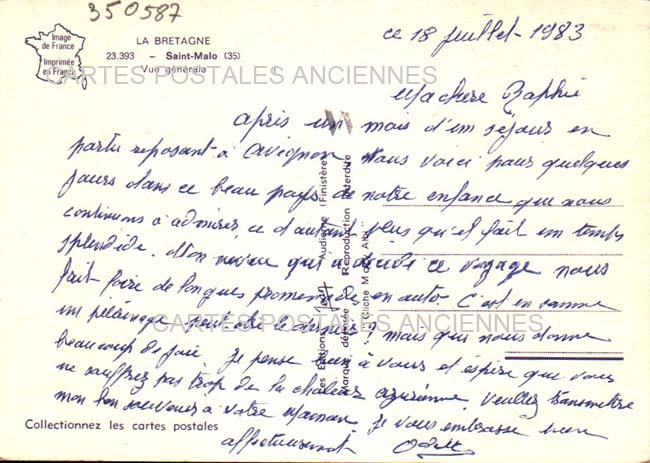 350587
Image
de France
Imprimée
en France
LA BRETAGNE
23.393 – Saint-Malo (35)
Vue générale
CARTES POSTALES ANCIENNES
ce 18 juillet - 1983
Ma chère
Après un mois d'un séjour en
partie reposant à Avignon Nous voici pour quelques
jours dans ce beau pays de notre enfance que nous
continuons à admirer, ce d'autant plus qu'il fait un temps
splendide. Mon neveu qui a décidé ce voyage nous
fait faire de longues promenades en auto. C'est en somme
un pélérinage peut être le dernier? mais qui nous donne
CARTES POSTALES ANCIENNES
beaucoup de joie. Je pense bien à vous et espère que vous
ne souffrez pas trop de la chaleur azuréenne. Veuillez transmettre
mon bon souvenir à votre Maman, je vous embrasse bien
affectueusement Odette
Collectionnez les cartes postales
Les Editions Audierne (Finistère)
Marque déposée Reproduction interdite
Cliché